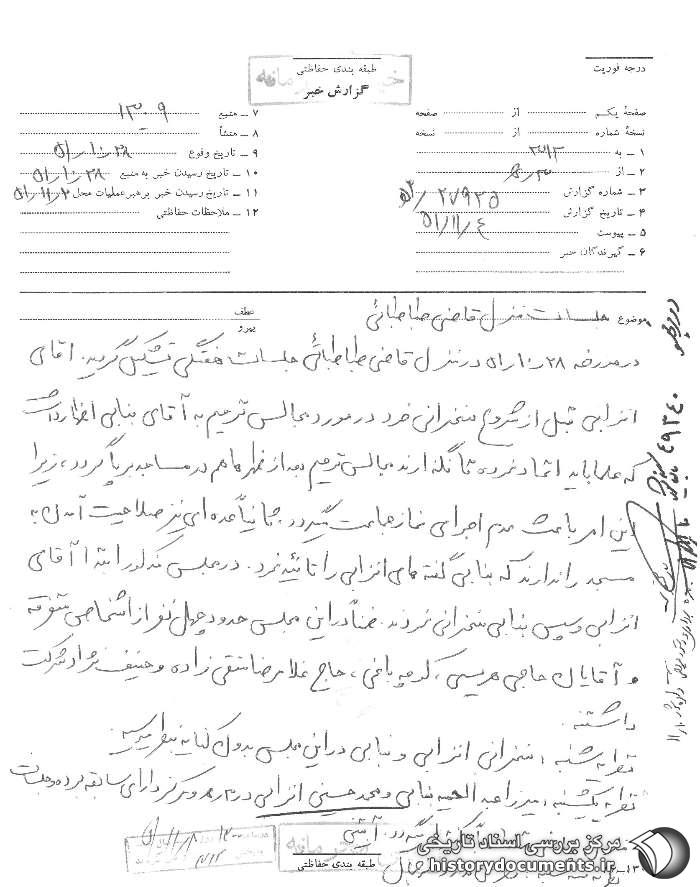 درجه فوریت
طبقه بندی حفاظتی
خیلی محرمانه
گزارش خبر
صفحهٔ یکم از صفحه
نسخهٔ شماره از نسخه
۱ ــ به ۳۱۲
۲ ــ از
۳ ــ شماره گزارش ۲۷۹۲۵/
۴ ــ تاریخ گزارش ۵۱/۱۱/۴
۵ ــ پیوست
۶ ــ گیرندگان خبر
۷ ــ منبع ۱۳۰۹
۸ ــ منشأ
۹ ــ تاریخ وقوع ۵۱/۱۰/۲۸
۱۰ ــ تاریخ رسیدن خبر به منبع ۵۱/۱۰/۲۸
۱۱ ــ تاریخ رسیدن خبر برهبر عملیات محل ۵۱/۱۱/۲
۱۲ ــ ملاحظات حفاظتی
موضوع جلسات منزل قاضی طباطبائی
عطف
پیرو
در مورخه ۵۱/۱۰/۲۸ در منزل قاضی طباطبائی جلسات هفتگی تشکیل گردید. آقای
انزابی قبل از شروع سخنرانی خود در مورد مجالس ترحیم به آقای بنابی اظهار داشت
که علما باید اتحاد نموده تا نگذارند مجالس ترحیم بعد از ظهرها هم در مساجد برپا گردد، زیرا
این امر باعث عدم اجرای نماز جماعت میگردد. ثانیاً عده ای نیز صلاحیت آمدن به
مسجد را ندارند که بنابی گفته های انزابی را تائید نمود. در مجلس مذکور ابتدا آقای
انزابی و سپس بنابی سخنرانی نمودند. ضمناً در این مجلس حدود چهل نفر از اشخاص متفرقه
و آقایان حاجی هریسی، کوچه باغی، حاج غلامرضا متقی زاده و حنیف نژاد شرکت
داشتند.
نظریه شنبه: سخنرانی انزابی و بنابی در این مجلس بدون کنایه بنظر میرسید.
نظریه یکشنبه: میرزا عبدالحمید بنابی و محمدحسین انزابی در و مرکز دارای سابقه بوده و جلسات
۱۳ ــ طبقه بندی حفاظتی
۴۹۲۴۰
مرکز بررسی اسناد تاریخی
historydocuments.ir